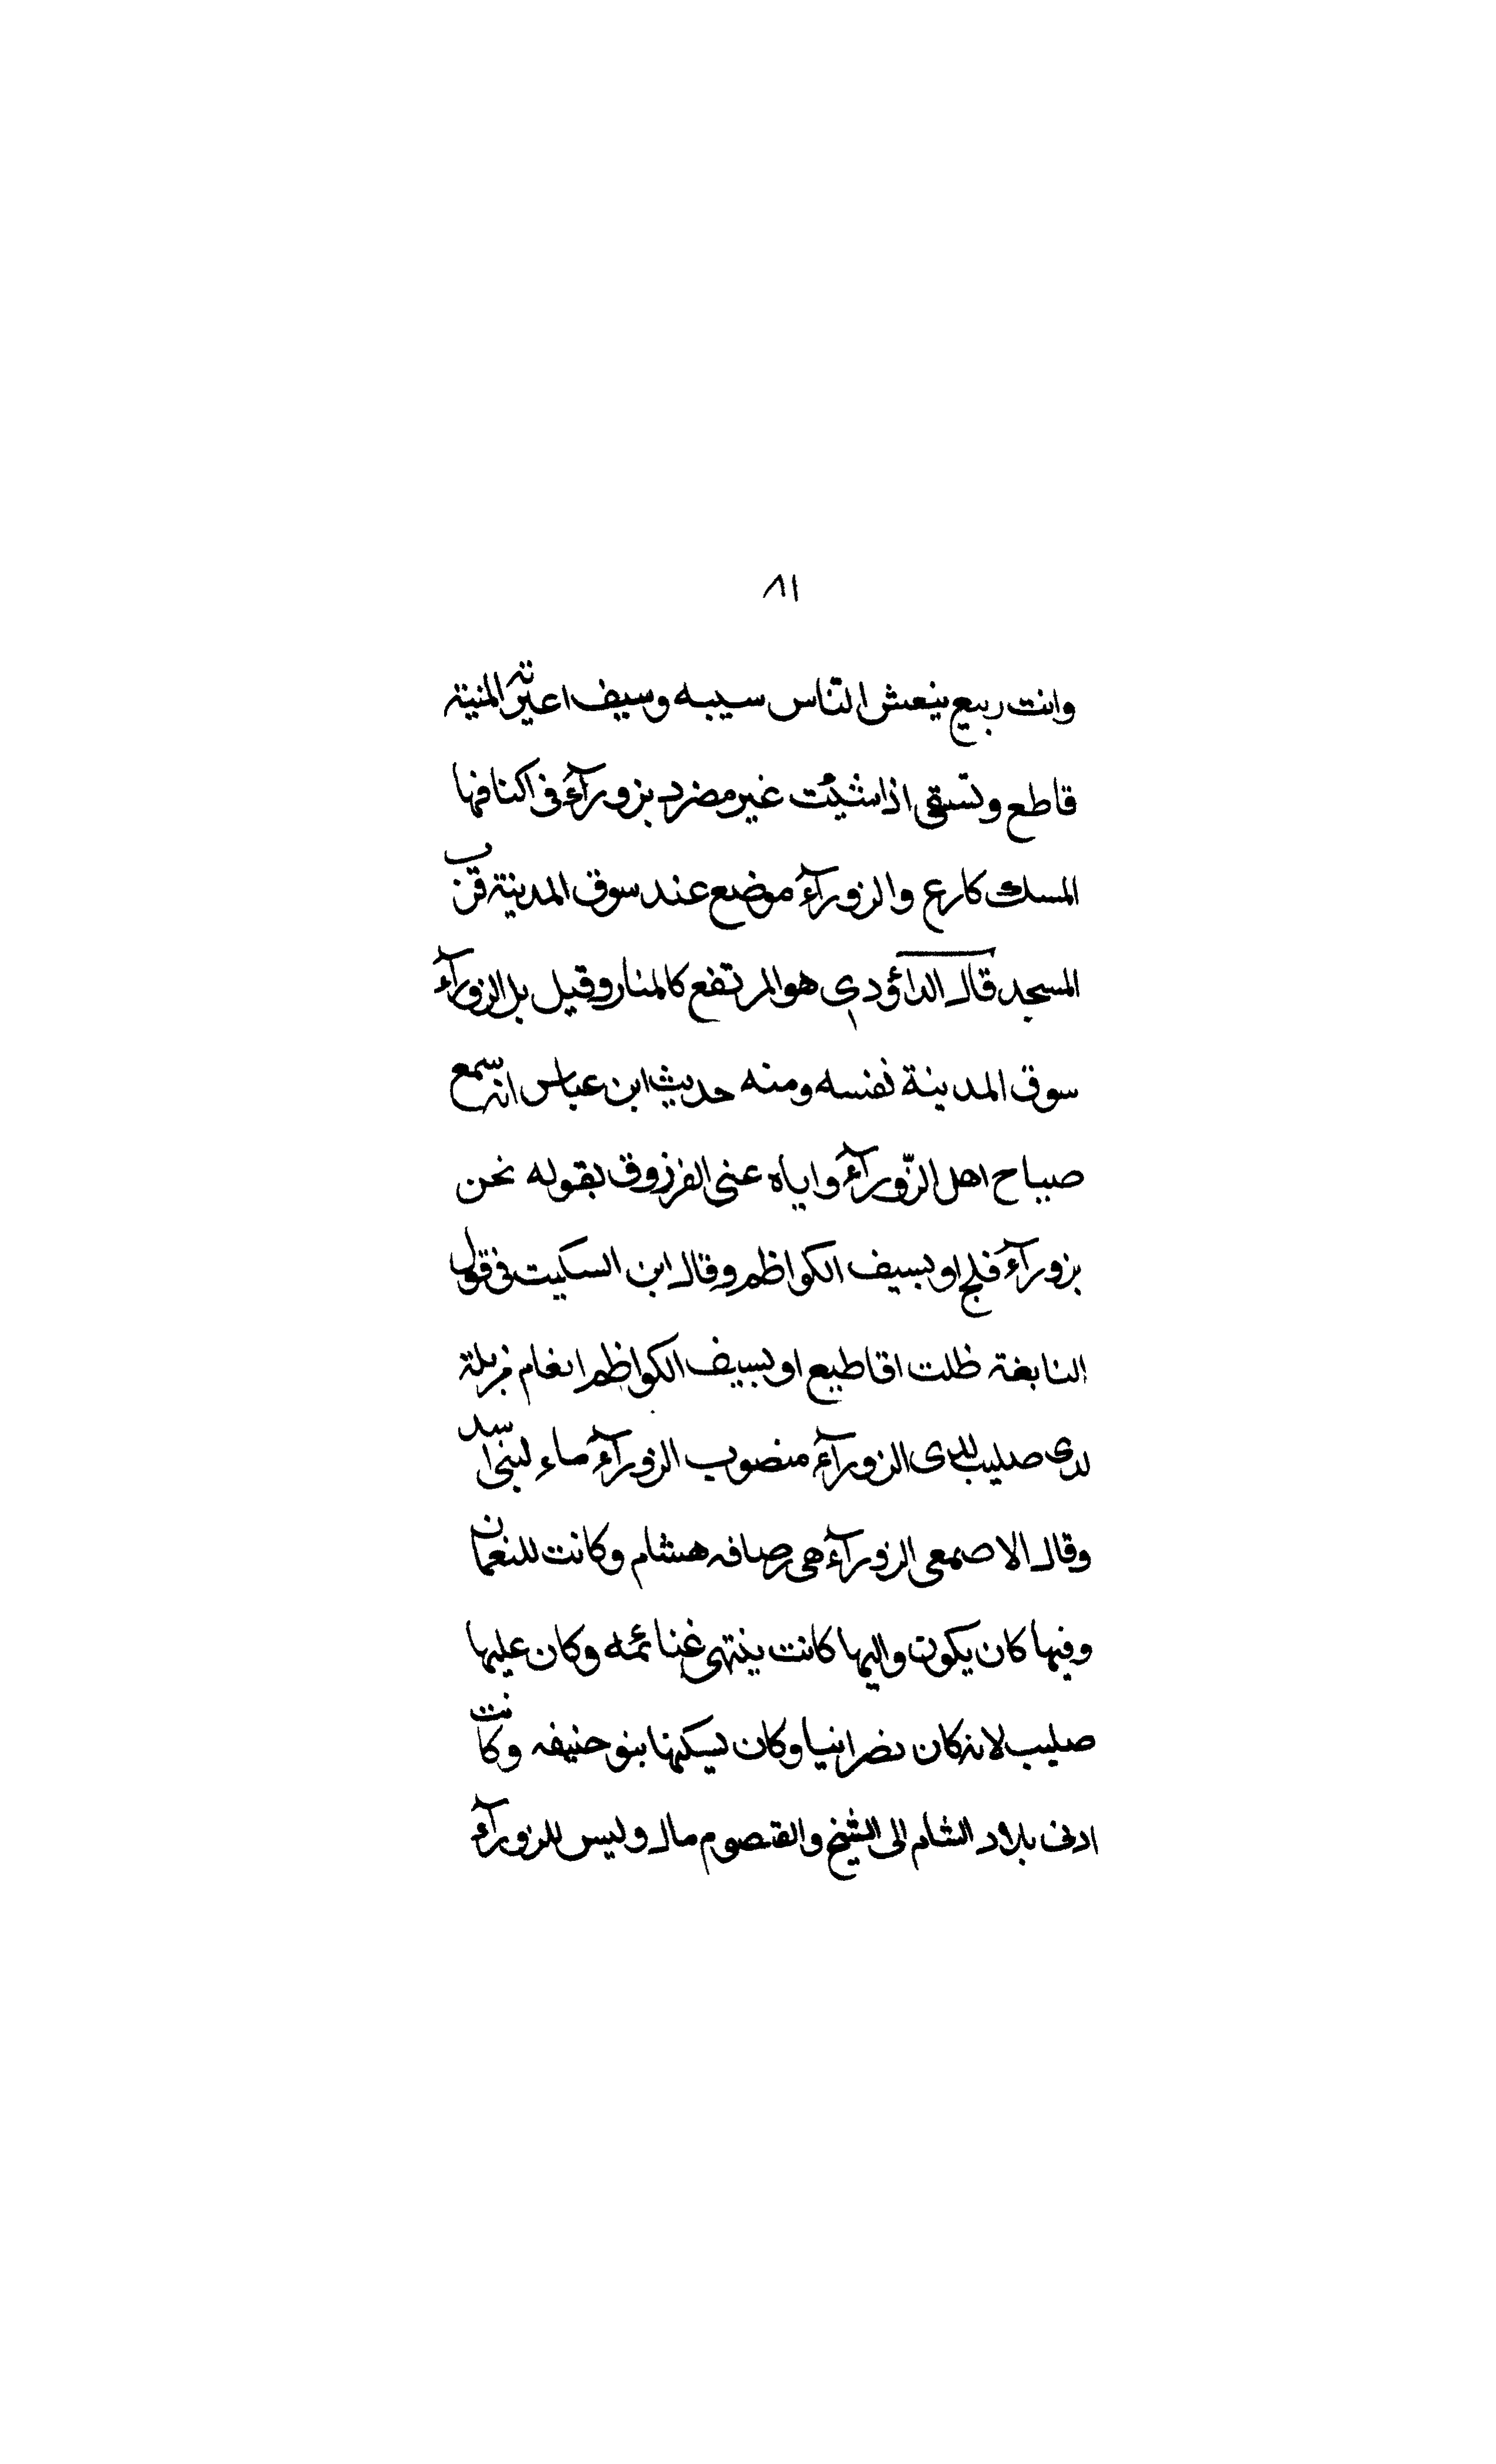 ٨١
وانت ربيع ينعش الناس سيبه وسيف اعيرته المنية
قاطع وتسقى اذا شئت غير مصرد بزورآء فى اكنافها
المسك كارع والزورآء موضع عند سوق المدينة قرب
المسجد قال الداؤدي هو المرتفع كالمنار وقيل بل الزورآء
سوق المدينة نفسه ومنه حديث ابن عباس انه سمع
صياح اهل الزّورآء واياه عنى الفرزوق بقوله نحن
بزورآء فلج او بسيف الكواظم وقال ابن السكيت فى قول
النابغة ظلت اقاطيع او بسيف الكواظم انعام مزبلة
لدى صليب لدى الزورآء منصوب الزورآء ماء لبنى اسد
وقال الاصمعى الزورآء هى رصافه هشام وكانت للنعمان
وفيها كان يكون واليها كانت ينتهى غنائمه وكان عليها
صليب لانه كان نصرانيا وكان يسكنها بنو حنيفه وكانت
ادنى بلاد الشام الى الشيخ والقصوم مال وليس للزورآء